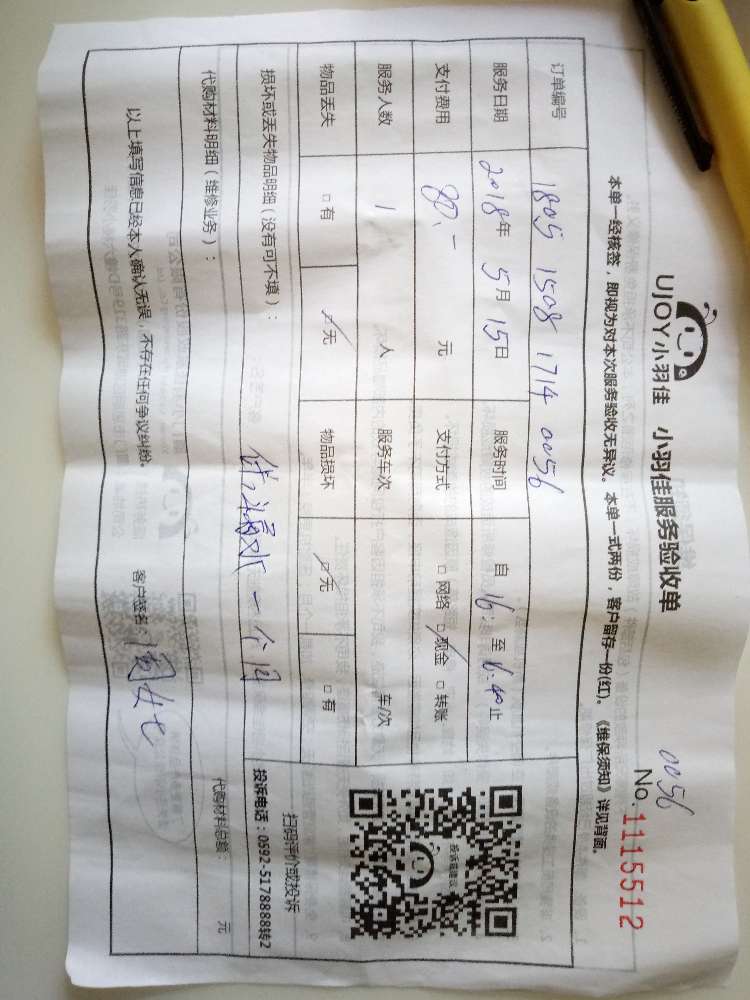 UJOY小羽佳 小羽佳服务验收单
0056
No.1115512
本单一经核签，即视为对本次服务验收无异议。本单一式两份，客户留存一份(红)。《维保须知》详见背面。
订单编号 1805 1508 1714 0056
服务日期 2018年 5月 15日 服务时间 自 16: 至 6:40止
支付费用 80.- 元 支付方式 □网络 □现金 □转账
服务人数 1 人 服务车次 车/次
物品丢失 □有 □无 物品损坏 □无 □有
投诉或建议
扫码评价或投诉
投诉电话：0592-5178888转2
损坏或丢失物品明细（没有可不填）：
一个月
代购材料明细（维修业务）： 代购材料总额： 元
以上填写信息已经本人确认无误，不存在任何争议纠纷。 客户签名：